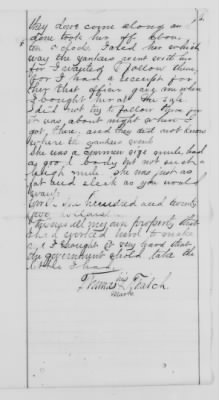 they dove come along an
done took her off. About
ten o'clock I aked her which
way the yankees went with her
for I wanted to follow them
for I had a receipt for
her that officer gave me when
I bought her at the sale
I did not try to follow them for
it was about night when I
got there, and they did not know
where the yankees went.
She was a common size mule, had
a good body but not such a
high mule. She was just as
fat and sleek as you would
want.
One hundred and twenty
five dollars.
It was all my own property that
I had worked hard to make
and I thought it very hard that
the government should take the
little I had.
his
Thomas Thatch
mark